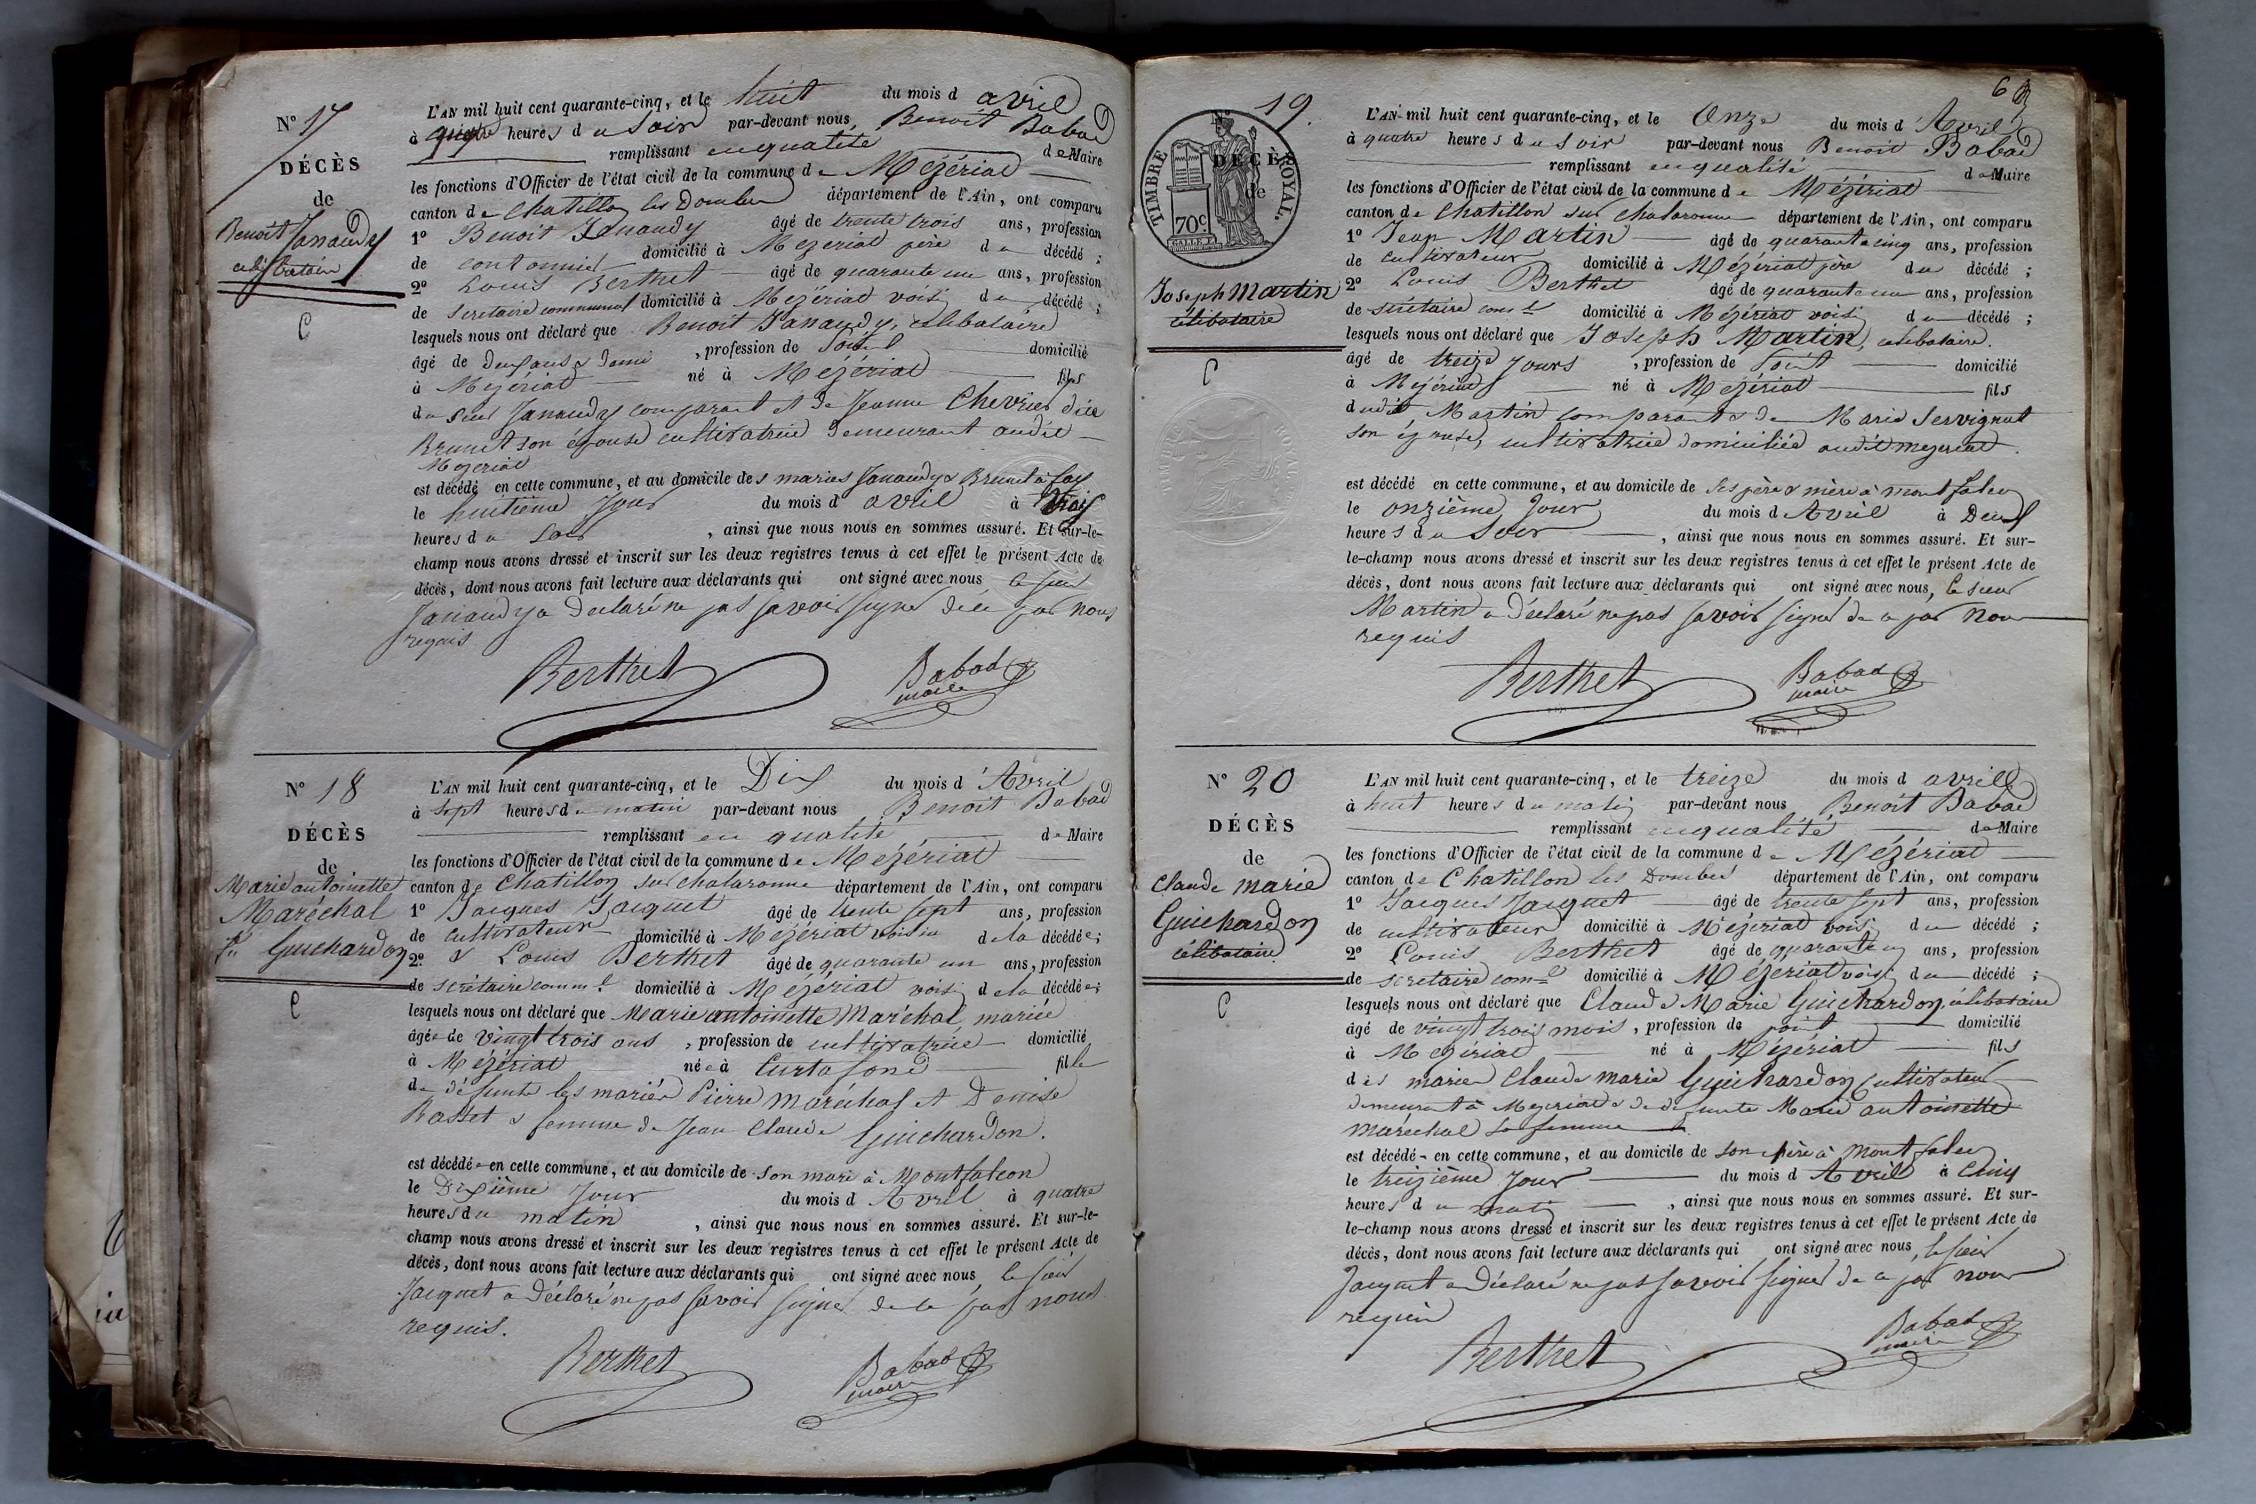 N° 17
DÉCÈS
de
Benoît Janaudy
célibataire
C
L'AN mil huit cent quarante-cinq, et le huit du mois d avril
à quatre heures du soir par-devant nous Benoit Babad
remplissant en qualité de Maire
les fonctions d'Officier de l'état civil de la commune de Mézériat
canton de Chatillon les Dombes département de l'Ain, ont comparu
1° Benoit Janaudy âgé de trente trois ans, profession
de domicilié à Mézériat père du décédé ;
2° Louis Berthet âgé de quarante un ans, profession
de secrétaire communal domicilié à Mézériat voisin du décédé ;
lesquels nous ont déclaré que Benoit Janaudy, célibataire
âgé de deux ans & demi , profession de point domicilié
à Mézériat né à Mézériat fils
du sieur Janaudy comparant et de Jeanne Chevrier dite
Brunet son épouse cultivatrice demeurant audit
Mézériat
est décédé en cette commune, et au domicile des mariés Janaudy & Brunet à
le huitième jour du mois d avril à trois
heures du soir , ainsi que nous nous en sommes assuré. Et sur-le-
champ nous avons dressé et inscrit sur les deux registres tenus à cet effet le présent Acte de
décès, dont nous avons fait lecture aux déclarants qui ont signé avec nous le sieur
Janaudy a déclaré ne pas savoir signer de ce par nous
requis
Berthet
Babad
maire
N° 18
DÉCÈS
de
Marie antoinette
Maréchal
fe Guichardon
C
L'AN mil huit cent quarante-cinq, et le Dix du mois d'Avril
à sept heures du matin par-devant nous Benoit Babad
remplissant en qualité de Maire
les fonctions d'Officier de l'état civil de la commune de Mézériat
canton de Chatillon sur chalaronne département de l'Ain, ont comparu
1° Jacques Jacquet âgé de trente sept ans, profession
de cultivateur domicilié à Mézériat voisin de la décédée ;
2° & Louis Berthet âgé de quarante un ans, profession
de secrétaire comml domicilié à Mézériat voisin de la décédée ;
lesquels nous ont déclaré que Marie antoinette Maréchal mariée
âgée de vingt trois ans , profession de cultivatrice domicilié
à Mézériat née à Curtafond fille
de défunts les mariés Pierre Maréchal et Denise
Basset & femme de Jean Claude Guichardon.
est décédée en cette commune, et au domicile de son mari à Montfalcon
le Dixième jour du mois d Avril à quatre
heures du matin , ainsi que nous nous en sommes assuré. Et sur-le-
champ nous avons dressé et inscrit sur les deux registres tenus à cet effet le présent Acte de
décès, dont nous avons fait lecture aux déclarants qui ont signé avec nous le sieur
Jacquet a déclaré ne pas savoir signer de ce par nous
requis.
Berthet
Babad
maire
63
N° 19.
DÉCÈS
de
TIMBRE ROYAL.
70c.
Joseph Martin
célibataire
C
L'AN mil huit cent quarante-cinq, et le Onze du mois d'Avril
à quatre heures du soir par-devant nous Benoit Babad
remplissant en qualité de Maire
les fonctions d'Officier de l'état civil de la commune de Mézériat
canton de Chatillon sur chalaronne département de l'Ain, ont comparu
1° Jean Martin âgé de quarante cinq ans, profession
de cultivateur domicilié à Mézériat père du décédé ;
2° Louis Berthet âgé de quarante un ans, profession
de secrétaire coml domicilié à Mézériat voisin du décédé ;
lesquels nous ont déclaré que Joseph Martin, célibataire.
âgé de treize jours , profession de point domicilié
à Mézériat né à Mézériat fils
dudit Martin comparant & de Marie Servignat
son épouse, cultivatrice domiciliée audit mézériat.
est décédé en cette commune, et au domicile de ses père & mère à montfalcon
le onzième jour du mois d Avril à Deux
heures du soir , ainsi que nous nous en sommes assuré. Et sur-
le-champ nous avons dressé et inscrit sur les deux registres tenus à cet effet le présent Acte de
décès, dont nous avons fait lecture aux déclarants qui ont signé avec nous, le sieur
Martin a déclaré ne pas savoir signer de ce par nous
requis
Berthet
Babad
maire
N° 20
DÉCÈS
de
Claude marie
Guichardon
célibataire
C
L'AN mil huit cent quarante-cinq, et le treize du mois d avrill
à huit heures du matin par-devant nous Benoit Babad
remplissant en qualité de Maire
les fonctions d'Officier de l'état civil de la commune de Mézériat
canton de Chatillon les Dombes département de l'Ain, ont comparu
1° Jacques Jacquet âgé de trente sept ans, profession
de cultivateur domicilié à Mézériat voisin du décédé ;
2° Louis Berthet âgé de quarante un ans, profession
de secretaire coml domicilié à Mézériat voisin du décédé ;
lesquels nous ont déclaré que Claude Marie Guichardon, célibataire
âgé de vingt trois mois , profession de point domicilié
à Mézériat né à Mézériat fils
des mariés Claude marie Guichardon cultivateur
demeurant à Mézériat & de défunte Marie antoinette
maréchal sa femme
est décédé en cette commune, et au domicile de son père à Montfalcon
le treizième jour du mois d Avril à Cinq
heures du matin , ainsi que nous nous en sommes assuré. Et sur-
le-champ nous avons dressé et inscrit sur les deux registres tenus à cet effet le présent Acte de
décès, dont nous avons fait lecture aux déclarants qui ont signé avec nous, le sieur
Jacquet a déclaré ne pas savoir signer de ce par nous
requis
Berthet
Babad
maire